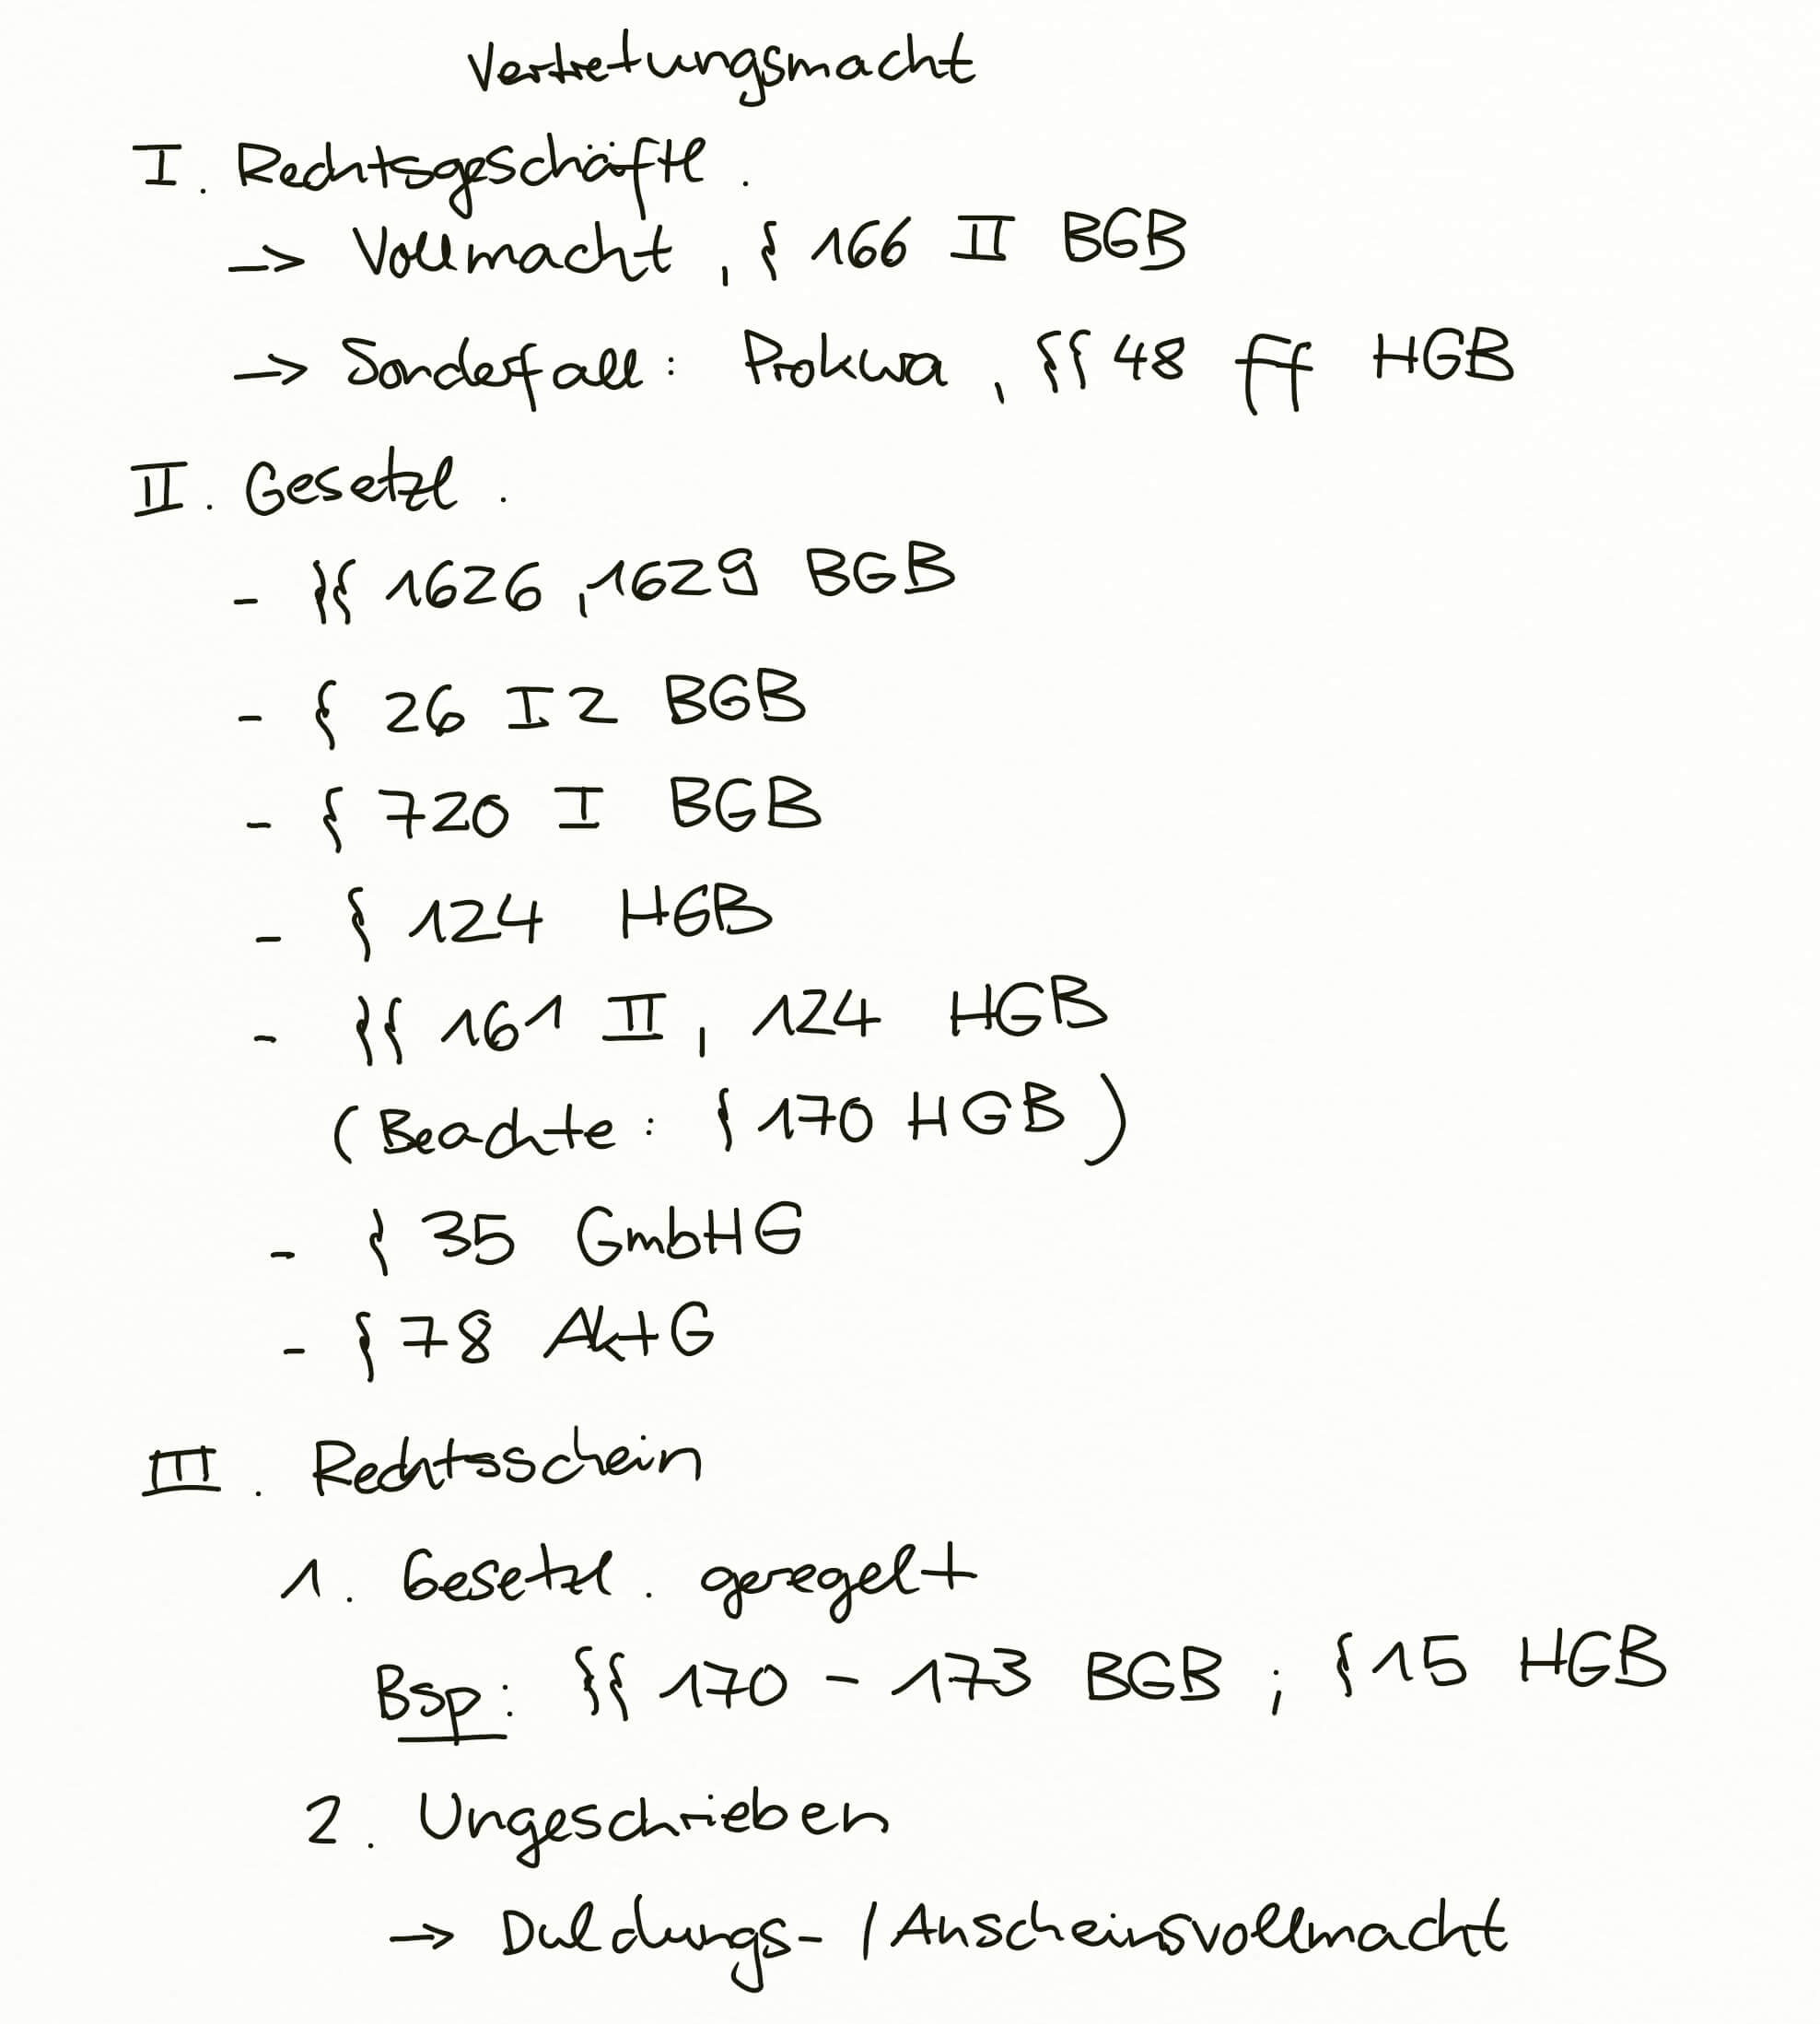 Vertretungsmacht
I. Rechtsgeschäftl.
→ Vollmacht, § 166 II BGB
→ Sonderfall: Prokura, §§ 48 ff HGB
II. Gesetzl.
- §§ 1626, 1629 BGB
- § 26 I 2 BGB
- § 720 I BGB
- § 124 HGB
- §§ 161 II, 124 HGB
(Beachte: § 170 HGB)
- § 35 GmbHG
- § 78 AktG
III. Rechtsschein
1. Gesetzl. geregelt
Bsp: §§ 170 - 173 BGB; § 15 HGB
2. Ungeschrieben
→ Duldungs- / Anscheinsvollmacht